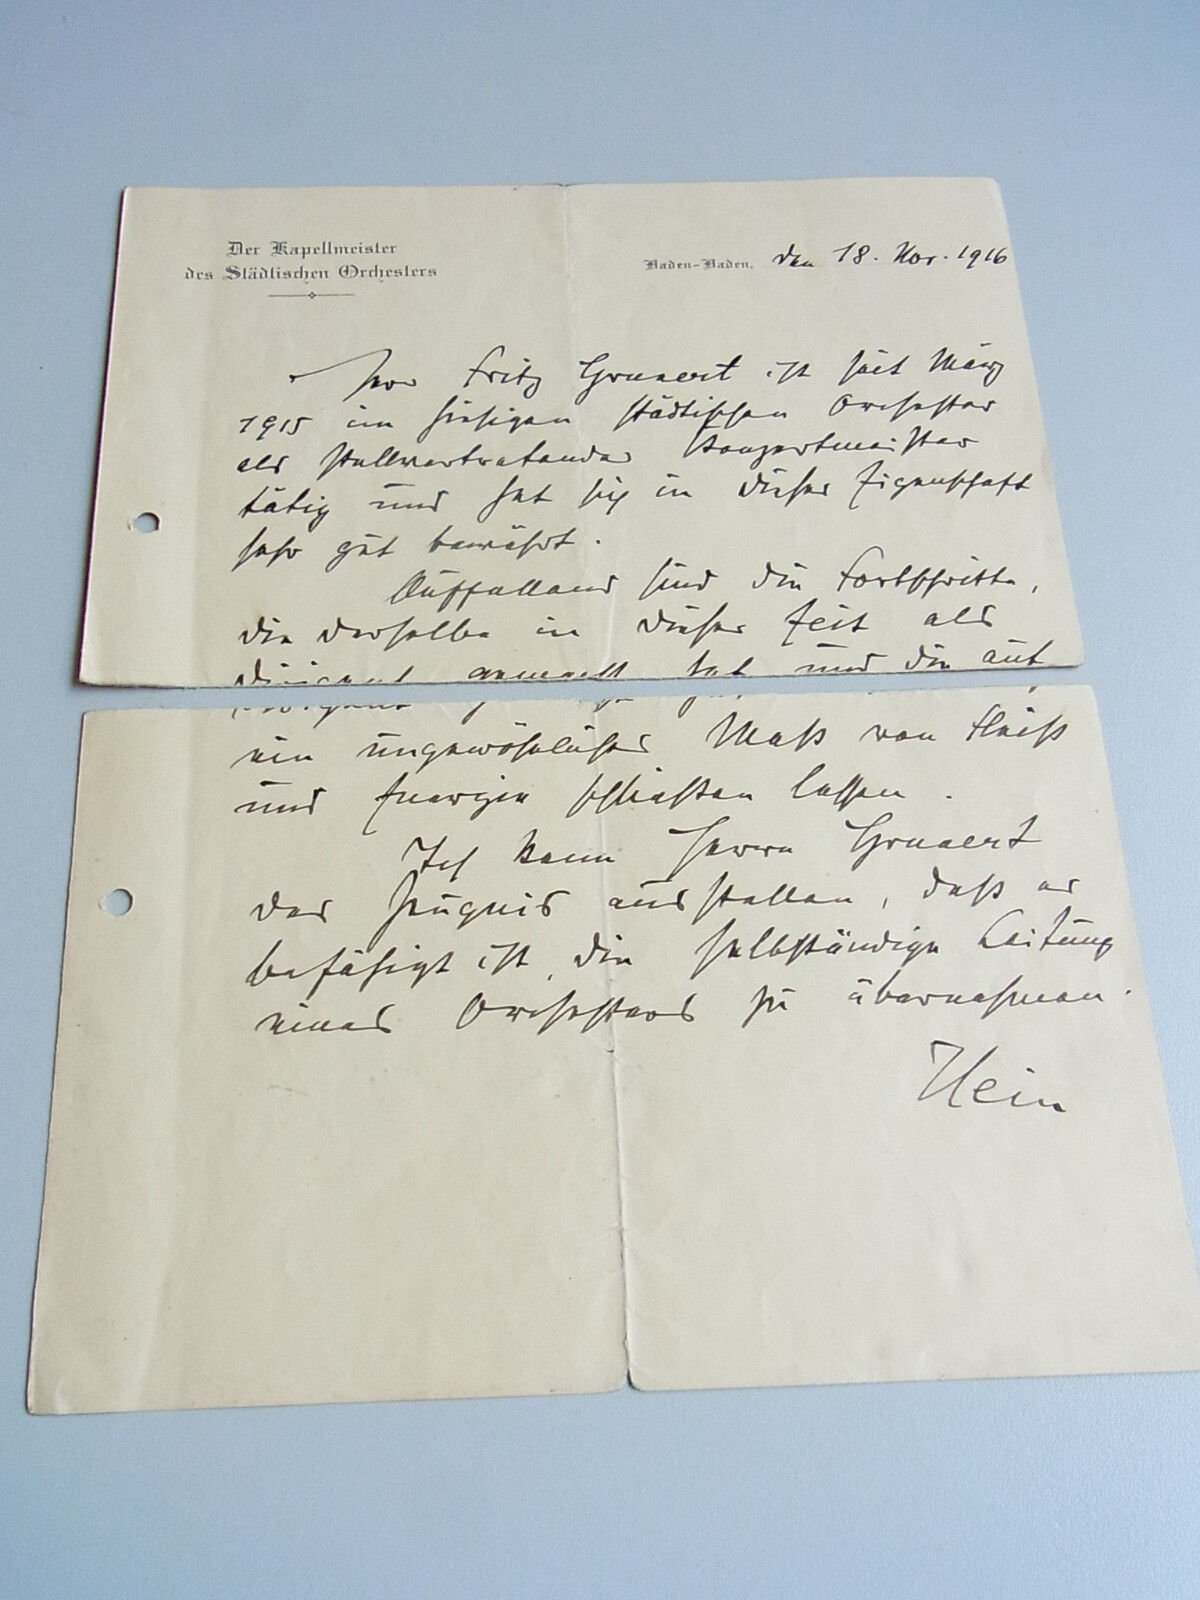 Der Kapellmeister
des Städtischen Orchesters
Baden-Baden, den 18. Nov. 1916
Herr Fritz Grunert ist seit März
1915 im hiesigen städtischen Orchester
als stellvertretender Konzertmeister
tätig und hat sich in dieser Eigenschaft
sehr gut bewährt.
Auffallend sind die Fortschritte,
die derselbe in dieser Zeit als
Dirigent gemacht hat und die auf
ein ungewöhnliches Maß von Fleiß
und Energie schließen lassen.
Ich kann Herrn Grunert
das Zeugnis ausstellen, daß er
befähigt ist, die selbständige Leitung
eines Orchesters zu übernehmen.
Hein